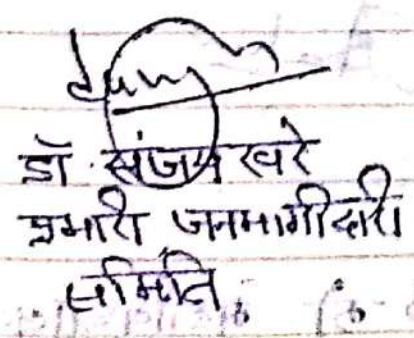 डॉ. संजय खरे
प्रभारी जनभागीदारी
समिति